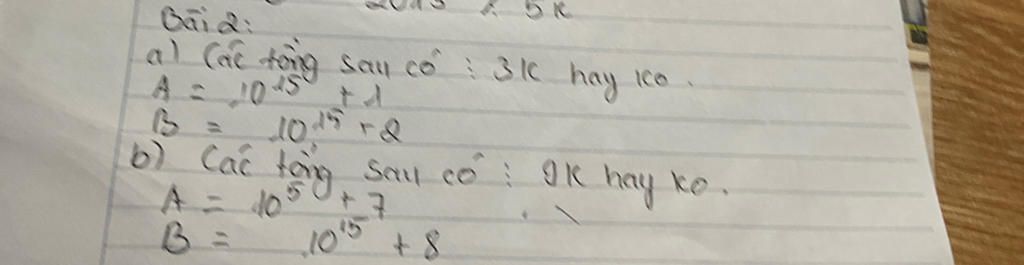 2015 : 5 K
Bài 2:
a) Các tổng sau có ⋮ 3 K hay ko.
A = 10^15 + 1
B = 10^15 + 2
b) Các tổng sau có ⋮ 9 K hay ko.
A = 10^5 + 7
B = 10^15 + 8